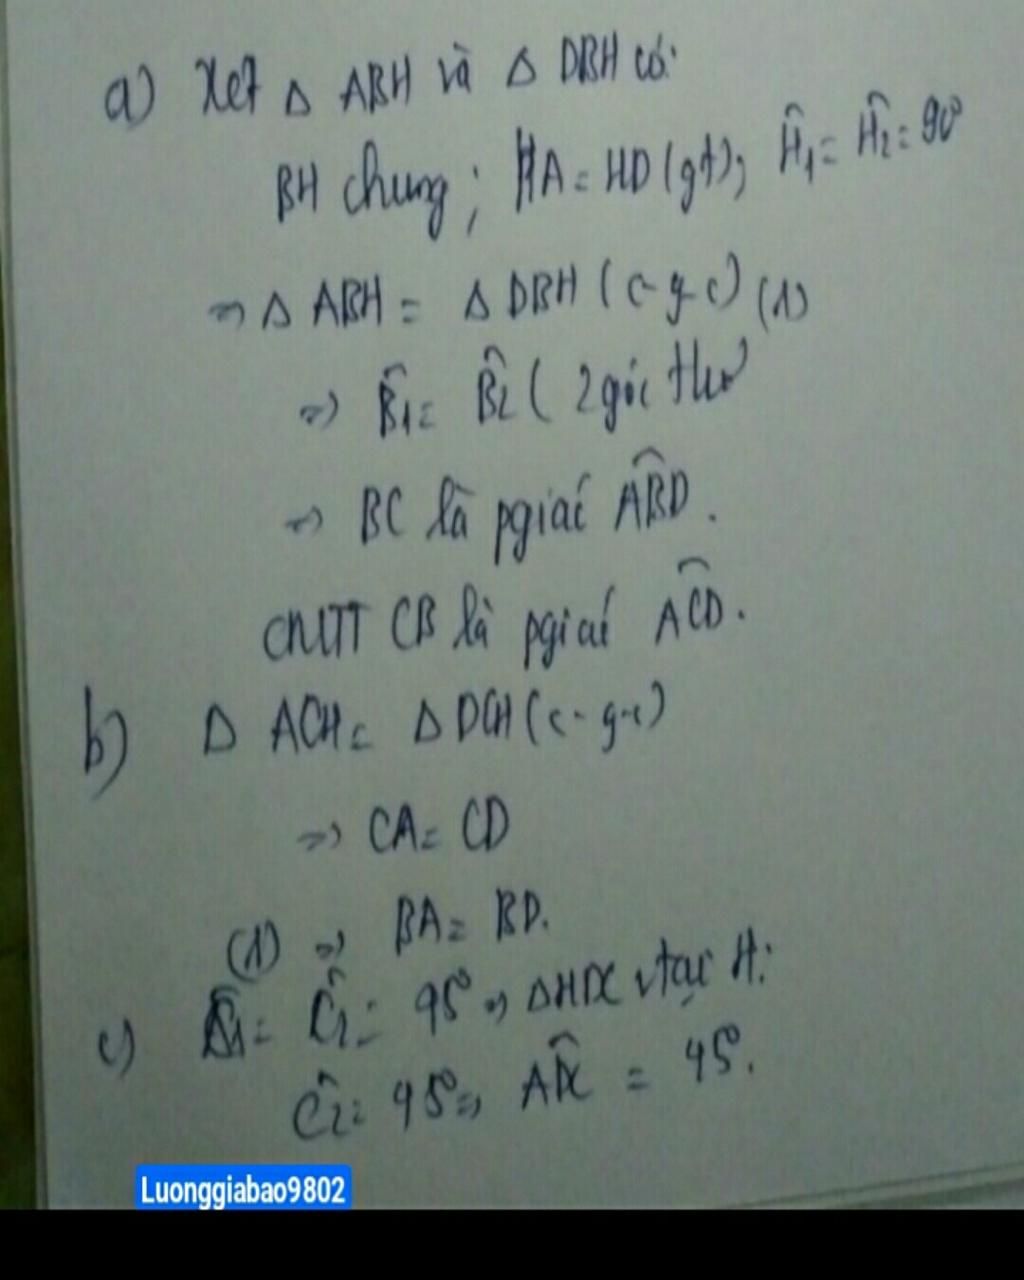 a) Xét Δ ABH và Δ DBH có:
BH chung; HA = HD (gt); Ĥ₁ = Ĥ₂ = 90°
=> Δ ABH = Δ DBH (c-g-c) (1)
=> B̂₁ = B̂₂ ( 2 góc
=> BC là pgiác ABD.
CMTT CB là pgiác ACD.
b) Δ ACH = Δ DCH (c-g-c)
=> CA = CD
(1) => BA = BD.
c) = Ĉ₂ = 45° => ΔHDC vtại H:
Ĉ₂ = 45° => ADC = 45°.
Luonggiabao9802